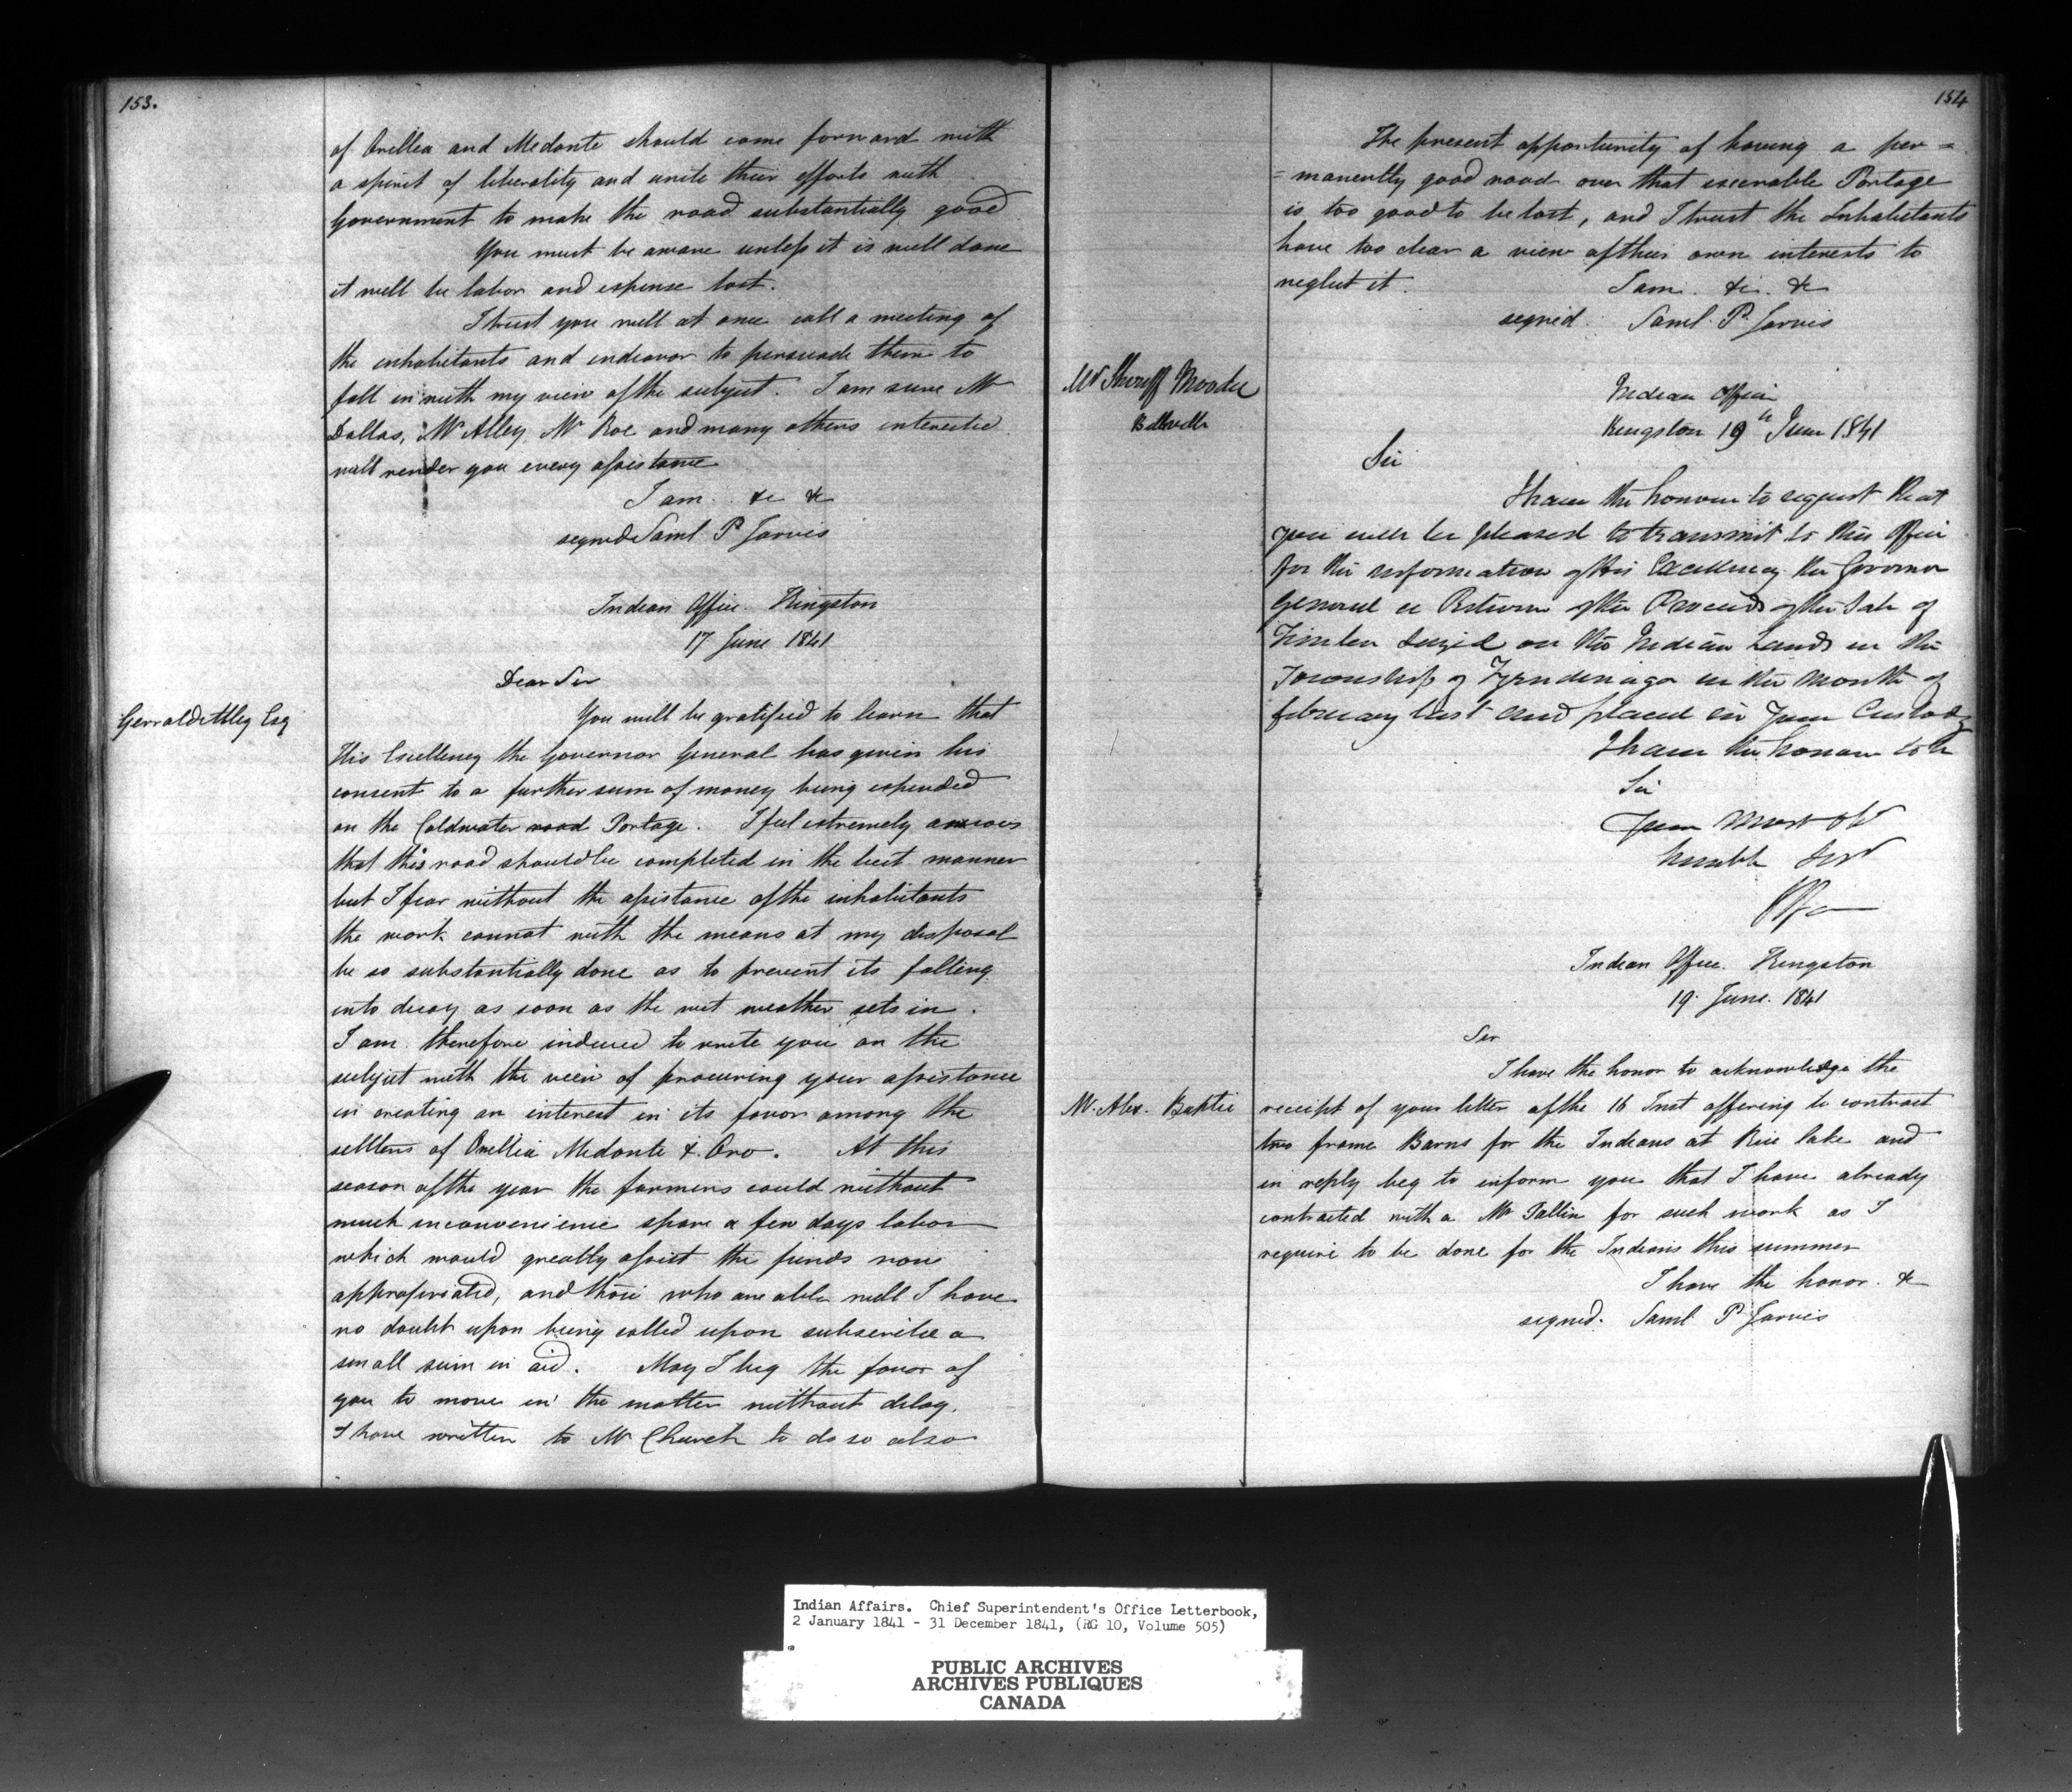 153.
of Orellea and Medonte should come forward with
a spirit of liberality and unite their efforts with
Government to make the road substantially good
You must be aware unless it is well done
it will be labor and expense lost.
I trust you will at once call a meeting of
the inhabitants and endeavor to persuade them to
fall in with my view of the subject. I am sure Mr
Dallas, Mr Alley, Mr Roe and many others interested
will render you every assistance
I am &c &c
signed Saml P Jarvis
Indian Office Kingston
17 June 1841
Dear Sir
Gerrald Alley Esq
You will be gratified to learn that
His Excellency the Governor General has given his
consent to a further sum of money being expended
on the Coldwater road Portage. I feel extremely anxious
that this road should be completed in the best manner
but I fear without the assistance of the inhabitants
the work cannot with the means at my disposal
be so substantially done as to prevent its falling
into decay as soon as the wet weather sets in.
I am therefore induced to write you on the
subject with the view of procuring your assistance
in creating an interest in its favor among the
settlers of Orellia Medonte & Oro. At this
season of the year the farmers could without
much inconvenience spare a few days labor
which would greatly assist the funds now
appropriated, and those who are able will I have
no doubt upon being called upon subscribe a
small sum in aid. May I beg the favor of
you to move in the matter without delay.
I have written to Mr Church to do so also
154
The present opportunity of having a per=
=manently good road over that execrable Portage
is too good to be lost, and I trust the Inhabitants
have too clear a view of their own interests to
neglect it. I am. &c. &c
signed. Saml. P. Jarvis
Mr Sheriff Moodie
Belleville
Indian Office
Kingston 19th June 1841
Sir
I have the honour to request that
you will be pleased to transmit to this Office
for the information of His Excellency the Governor
General a Return of the Proceeds of the Sale of
Timber seized on the Indian Lands in the
Township of Tyendinaga in the month of
february last and placed in your Custody
I have the honour to be
Sir
Your Most Obt
humble Servt
Indian Office. Kingston
19. June. 1841
Sir
I have the honor to acknowledge the
Mr. Alex. Baptie
receipt of your letter of the 16 Inst offering to contract
two frame Barns for the Indians at Rice lake and
in reply beg to inform you that I have already
contracted with a Mr Tallin for such work as I
require to be done for the Indians this summer
I have the honor. &c
signed. Saml P Jarvis
Indian Affairs. Chief Superintendent's Office Letterbook,
2 January 1841 - 31 December 1841, (RG 10, Volume 505)
PUBLIC ARCHIVES
ARCHIVES PUBLIQUES
CANADA